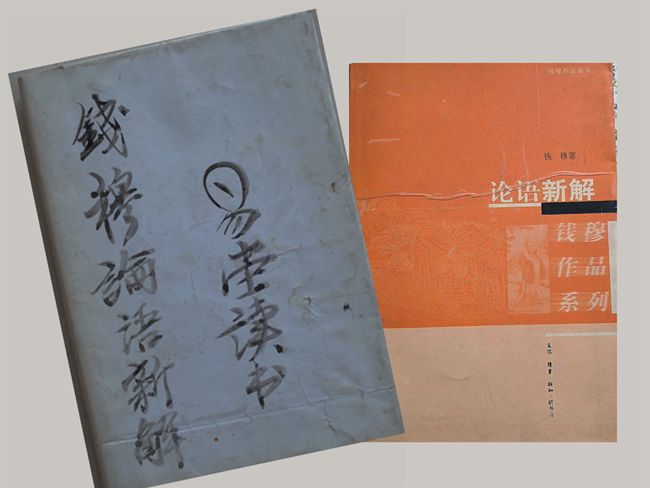 錢穆論語新解
易堂读书
钱穆作品系列
钱 穆著
论语新解
钱穆
作品
系列
生活·读书·新知三联书店